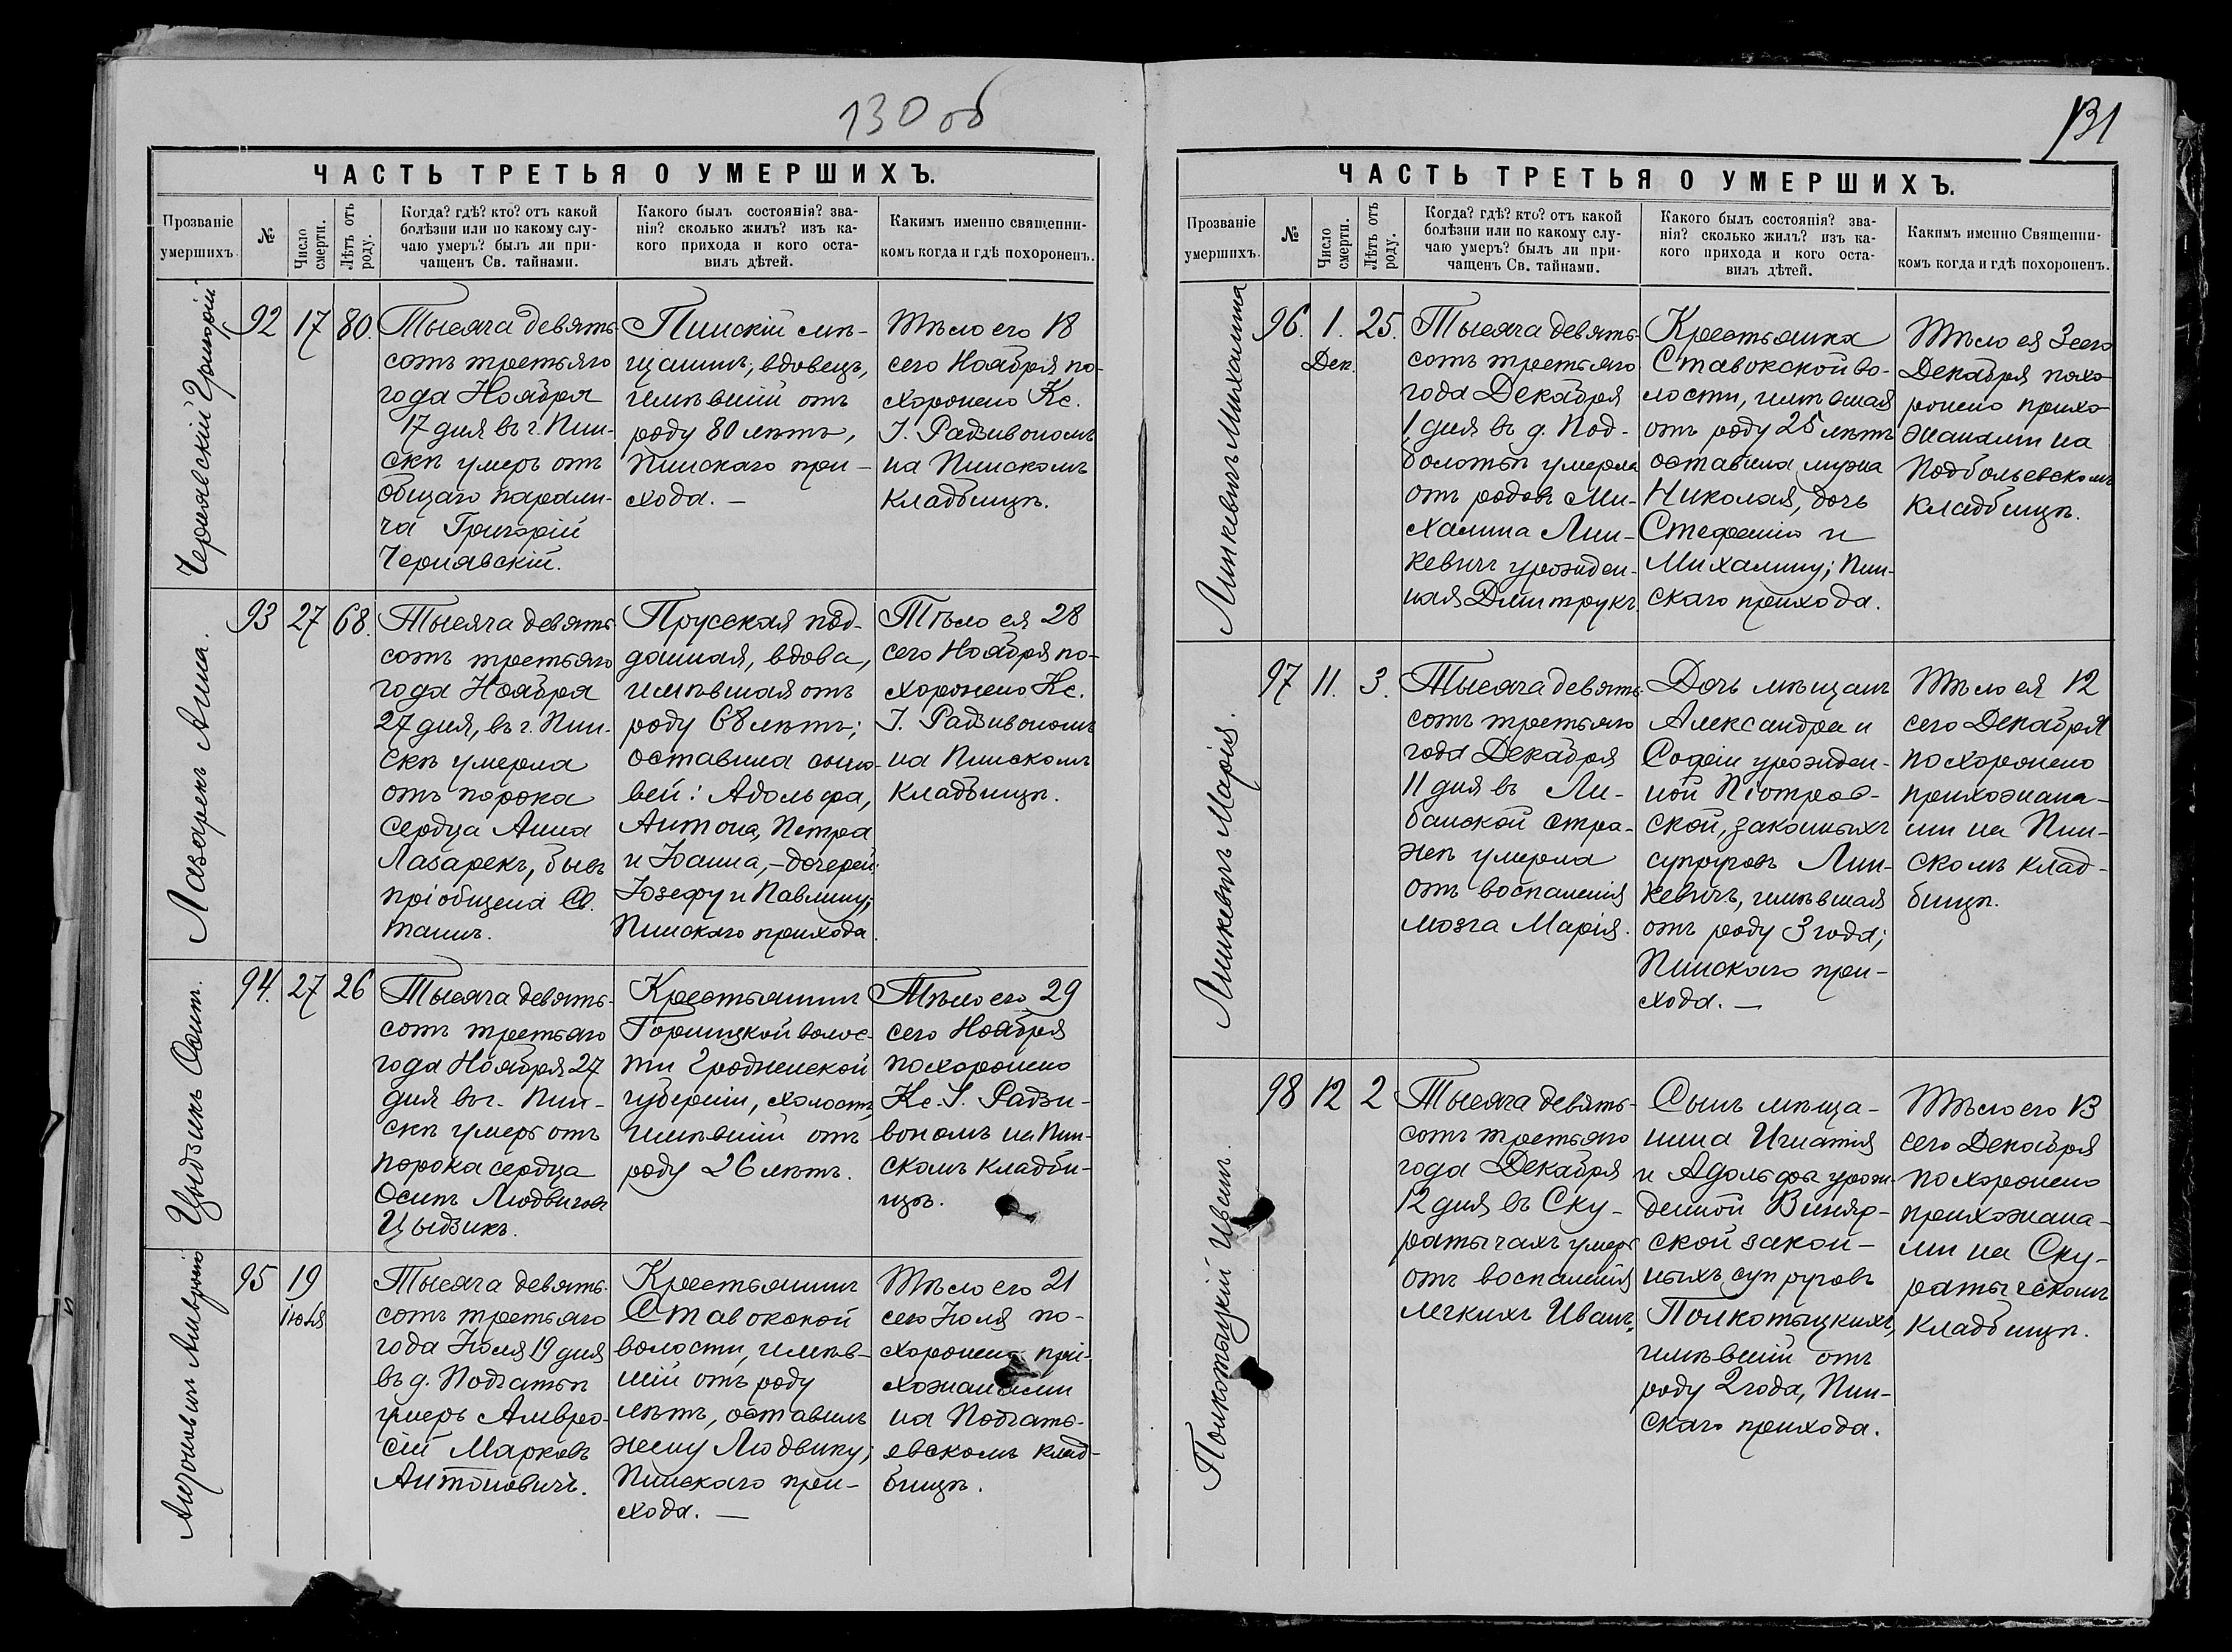 130 об
ЧАСТЬ ТРЕТЬЯ О УМЕРШИХЪ.
Прозваніе
умершихъ.
№
Число
смерти.
Лѣтъ отъ
роду.
Когда? гдѣ? кто? отъ какой
болѣзни или по какому слу-
чаю умеръ? былъ ли при-
чащенъ Св. тайнами.
Какого былъ состоянія? зва-
нія? сколько жилъ? изъ ка-
кого прихода и кого оста-
вилъ дѣтей.
Какимъ именно священни-
комъ когда и гдѣ похороненъ.
Чернявскій Григорій
92
17
80.
Тысяча девять-
сотъ третьяго
года Ноября
17 дня въ г. Пин-
скѣ умеръ отъ
общаго парали-
ча Григорій
Чернявскій.
Пинскій мѣ-
щанинъ, вдовецъ,
имѣвшій отъ
роду 80 лѣтъ,
Пинскаго при-
хода. —
Тѣло его 18
сего Ноября по-
хоронено Кс.
І. Радзивономъ
на Пинскомъ
кладбищѣ.
Лазарекъ Анна.
93
27
68.
Тысяча девять-
сотъ третьяго
года Ноября
27 дня, въ г. Пин-
скѣ умерла
отъ порока
сердца Анна
Лазарекъ, бывъ
пріобщена Св.
таинъ.
Прусская под-
данная, вдова,
имѣвшая отъ
роду 68 лѣтъ;
оставила сыно-
вей: Адольфа,
Антона, Петра
и Іоанна, — дочерей:
Юзефу и Павлину;
Пинскаго прихода.
Тѣло ея 28
сего Ноября по-
хоронено Кс.
І. Радзивономъ
на Пинскомъ
кладбищѣ.
Цыдзикъ Осипъ.
94.
27
26
Тысяча девять-
сотъ третьяго
года Ноября 27
дня въ г. Пин-
скѣ умеръ отъ
порока сердца
Осипъ Людвиговъ
Цыдзикъ.
Крестьянинъ
Горницкой волос-
ти Гродненской
губерніи, холостъ
имѣвшій отъ
роду 26 лѣтъ.
Тѣло его 29
сего Ноября
похоронено
Кс. І. Радзи-
вономъ на Пин-
скомъ кладби-
щѣ.
Антоновичъ Амвросій
95
19
Іюля
Тысяча девять-
сотъ третьяго
года Іюля 19 дня
въ д. Подгатьи
умеръ Амвро-
сій Марковъ
Антоновичъ.
Крестьянинъ
Ставокской
волости, имѣв-
шій отъ роду
лѣтъ, оставилъ
жену Людвику;
Пинскаго при-
хода. —
Тѣло его 21
сего Іюля по-
хоронено при-
хожанами
на Подгать-
евскомъ клад-
бищѣ.
131
ЧАСТЬ ТРЕТЬЯ О УМЕРШИХЪ.
Прозваніе
умершихъ.
№
Число
смерти.
Лѣтъ отъ
роду.
Когда? гдѣ? кто? отъ какой
болѣзни или по какому слу-
чаю умеръ? былъ ли при-
чащенъ Св. тайнами.
Какого былъ состоянія? зва-
нія? сколько жилъ? изъ ка-
кого прихода и кого оста-
вилъ дѣтей.
Какимъ именно Священни-
комъ когда и гдѣ похороненъ.
Линкевичъ Михалина
96.
1.
Дек.
25.
Тысяча девять-
сотъ третьяго
года Декабря
1 дня въ д. Под-
болотьи умерла
отъ родовъ Ми-
халина Лин-
кевичъ урожден-
ная Дмитрукъ
Крестьянка
Ставокской во-
лости, имѣвшая
отъ роду 25 лѣтъ
оставила мужа
Николая, дочь
Стефанію и
Михалину; Пин-
скаго прихода.
Тѣло ея 3 сего
Декабря похо-
ронено прихо-
жанами на
Подбольевскомъ
кладбищѣ.
Линкевичъ Марія.
97
11.
3.
Тысяча девять-
сотъ третьяго
года Декабря
11 дня въ Ли-
банской стра-
жѣ умерла
отъ воспаленія
мозга Марія.
Дочь мѣщанъ
Александра и
Софіи урожден-
ной Піотров-
ской, законныхъ
супруговъ Лин-
кевичъ, имѣвшая
отъ роду 3 года;
Пинскаго при-
хода. —
Тѣло ея 12
сего Декабря
похоронено
прихожана-
ми на Пин-
скомъ клад-
бищѣ.
Полкотыцкій Иванъ.
98
12
2
Тысяча девять-
сотъ третьяго
года Декабря
12 дня въ Ску-
ратычахъ умеръ
отъ воспаленія
легкихъ Иванъ.
Сынъ мѣща-
нина Игнатія
и Адольфы урож-
денной Виняр-
ской закон-
ныхъ супруговъ
Полкотыцкихъ,
имѣвшій отъ
роду 2 года, Пин-
скаго прихода.
Тѣло его 13
сего Декабря
похоронено
прихожана-
ми на Ску-
ратыческомъ
кладбищѣ.